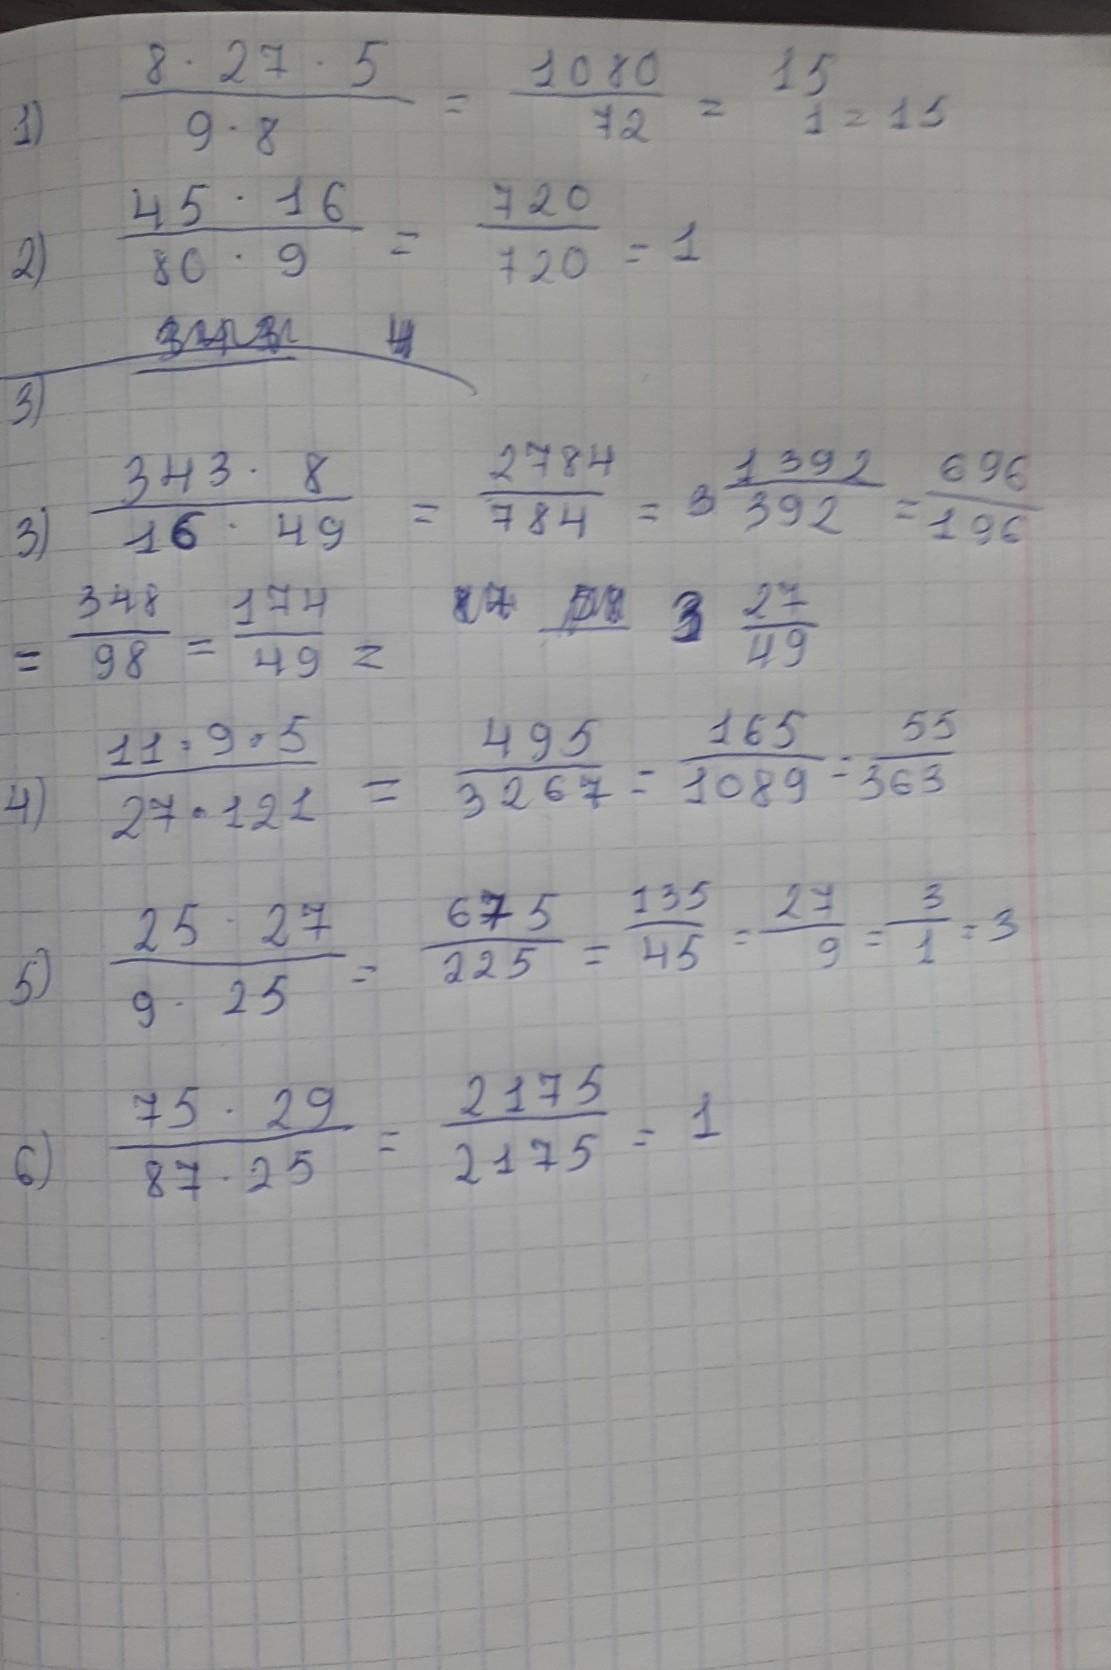 1) 8 · 27 · 5 / 9 · 8 = 1080 / 72 = 15 / 1 = 15
2) 45 · 16 / 80 · 9 = 720 / 720 = 1
3)
3) 343 · 8 / 16 · 49 = 2784 / 784 = 3 1392 / 392 = 696 / 196
= 348 / 98 = 174 / 49 = 3 27 / 49
4) 11 · 9 · 5 / 27 · 121 = 495 / 3267 = 165 / 1089 = 55 / 363
5) 25 · 27 / 9 · 25 = 675 / 225 = 135 / 45 = 27 / 9 = 3 / 1 = 3
6) 75 · 29 / 87 · 25 = 2175 / 2175 = 1